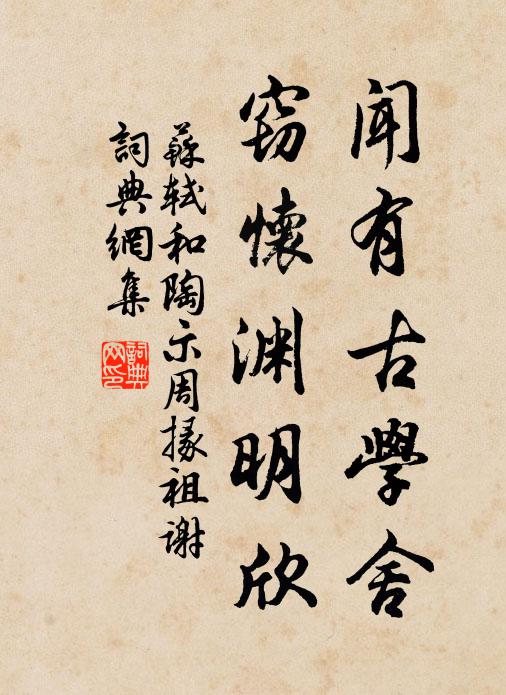 聞有古學舍
窃懷渊明欣
蘇轼和陶示周掾祖謝
詞典網集
詞典
网印